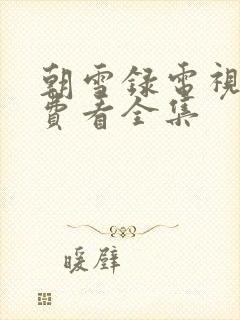 朝雪録電視
費看全集
暖壁